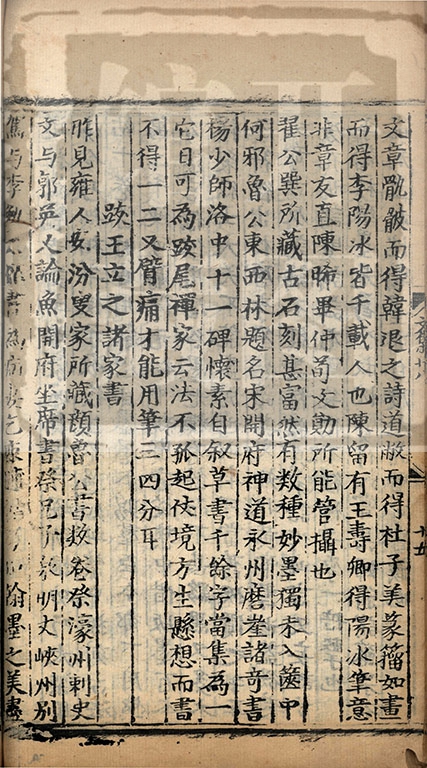 文章骫骳而得韓退之詩道敝而得杜子美篆籀如畫
而得李陽冰皆千載人也陳留有王壽卿得陽冰筆意
非章友直陳晞畢仲荀文勛所能管攝也
翟公巽所藏古石刻甚富然有数種妙墨獨未入篋中
何邪魯公東西林題名宋開府神道永州磨崖諸奇書
楊少師洛中十一碑懷素自叙草書千餘字當集為一
它日可為跋尾禪家云法不孤起仗境方生懸想而書
不得一二又臂痛才能用筆三四分耳
跋王立之諸家書
昨見雍人安汾叟家所藏顔魯公書数卷祭濠州刺史
文与郭英乂論魚開府坐席書祭兄子泉明文峽州别
与李勉太保書為病妻乞翰墨之美